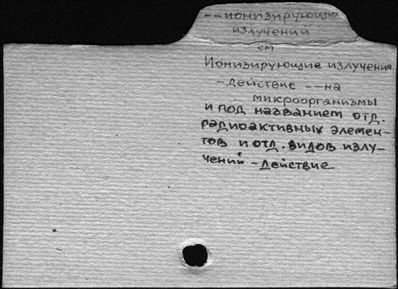 --ионизирующих
излучений
см
Ионизирующие излучения
-Действие --на
микроорганизмы
и под названием отд.
радиоактивных элемен-
тов и отд. видов излу-
чений -Действие